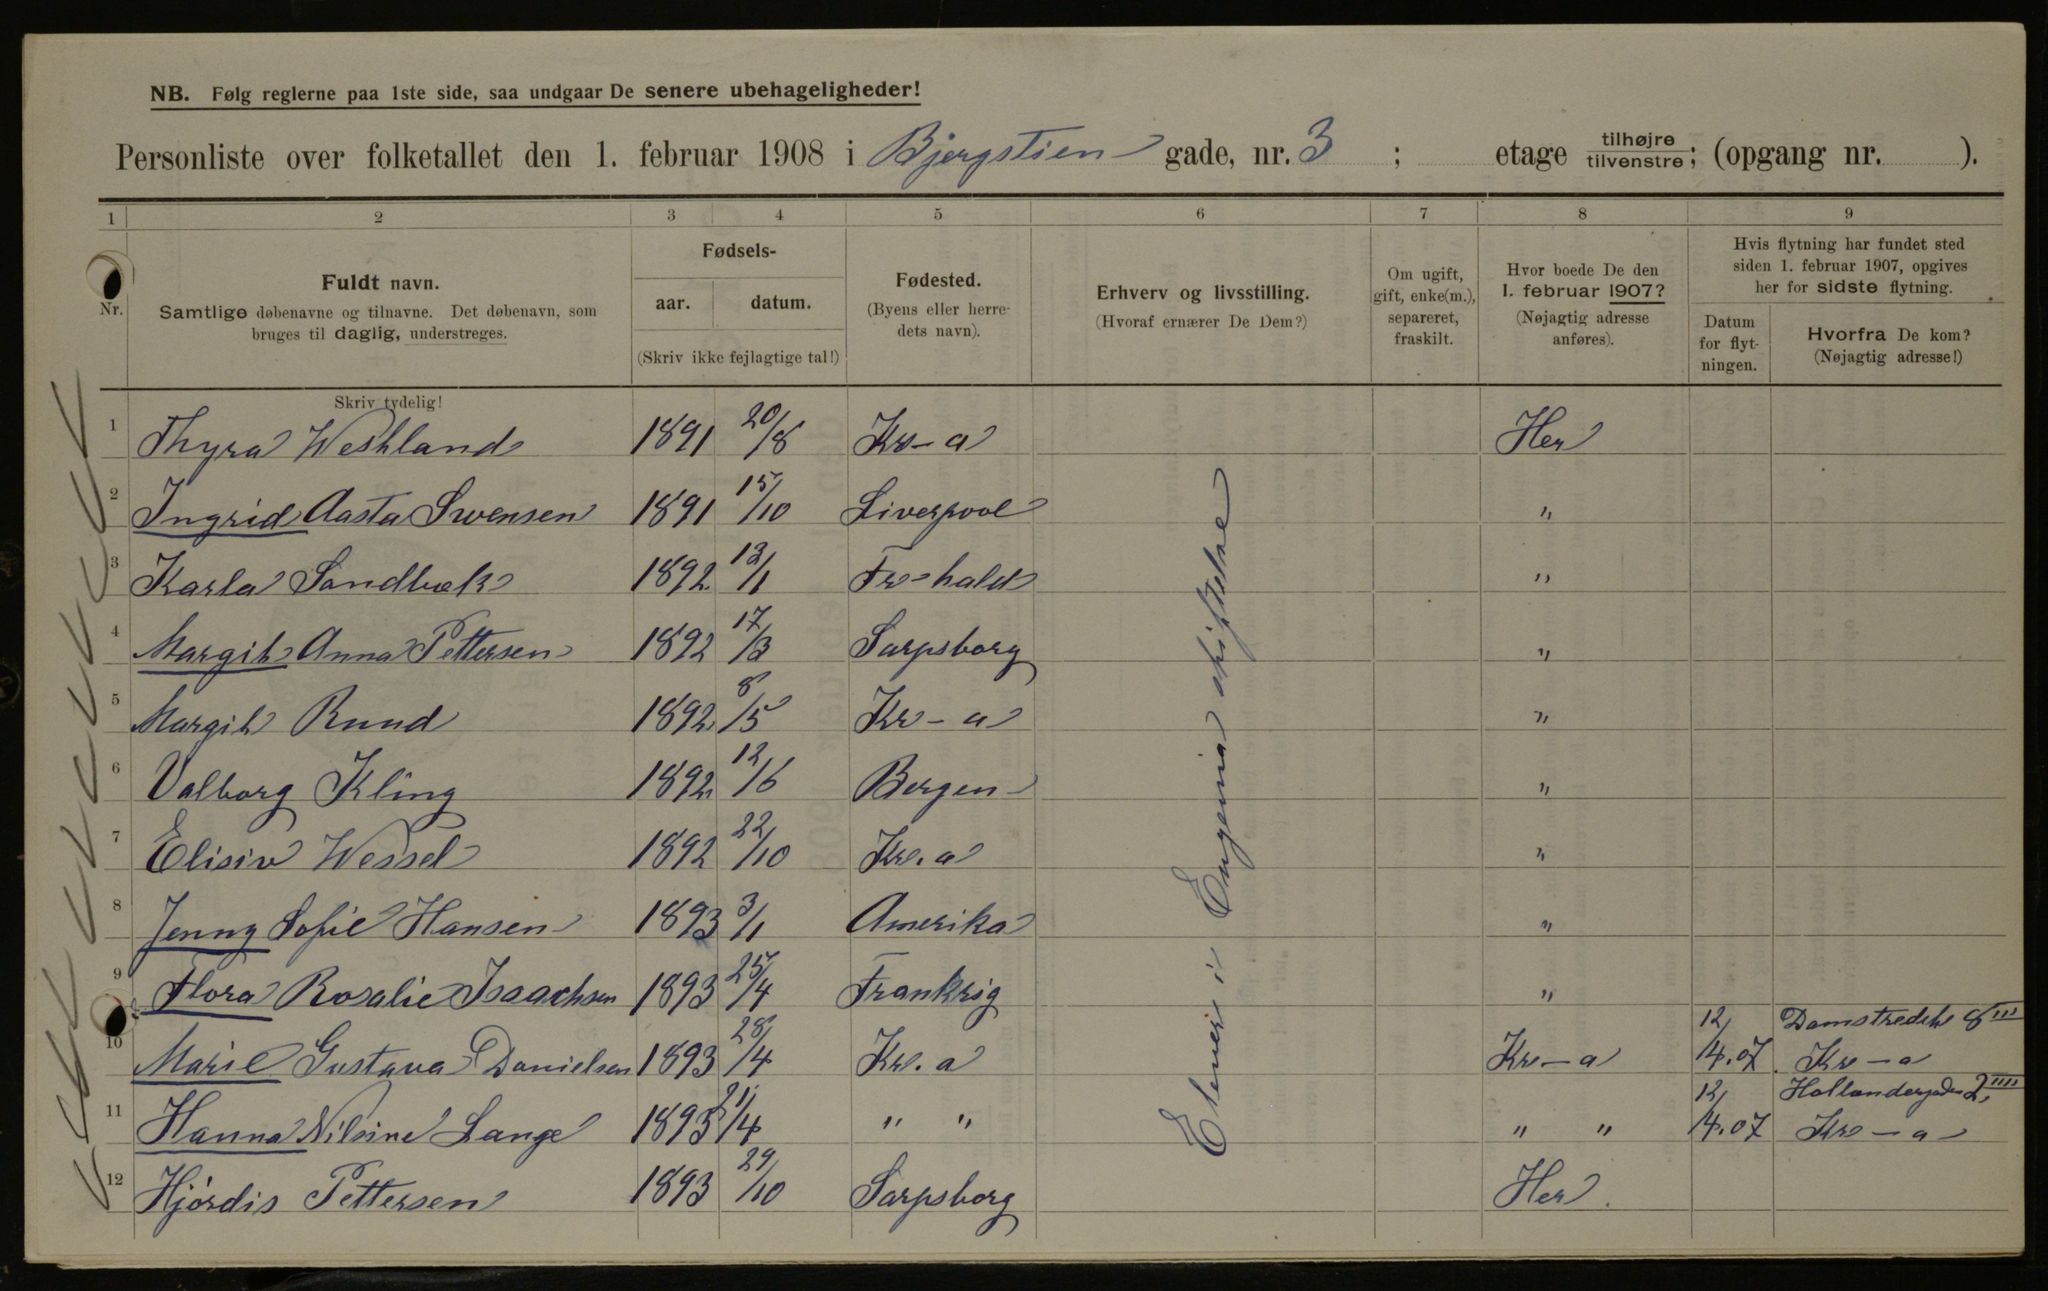 NB. Følg reglerne paa 1ste side, saa undgaar De senere ubehageligheder!
Personliste over folketallet den 1. februar 1908 i Bjergstien gade, nr. 3 ; etage tilhøjre tilvenstre; (opgang nr. ).
1 2 3 4 5 6 7 8 9
Nr.
Fuldt navn.
Samtlige døbenavne og tilnavne. Det døbenavn, som
bruges til daglig, understreges.
Fødsels-
aar. datum.
(Skriv ikke fejlagtige tal!)
Fødested.
(Byens eller herre-
dets navn).
Erhverv og livsstilling.
(Hvoraf ernærer De Dem?)
Om ugift,
gift, enke(m.),
separeret,
fraskilt.
Hvor boede De den
1. februar 1907?
(Nøjagtig adresse
anføres).
Hvis flytning har fundet sted
siden 1. februar 1907, opgives
her for sidste flytning.
Datum
for flyt-
ningen.
Hvorfra De kom?
(Nøjagtig adresse!)
Skriv tydelig!
1 Thyra Westland 1891 20/8 Kr-a Her
2 Ingrid Aasta Swensen 1891 15/10 Liverpool "
3 Karla Sandbæk 1892 13/1 Fr-hald "
4 Margit Anna Pettersen 1892 17/3 Sarpsborg "
5 Margit Ruud 1892 8/5 Kr-a "
6 Valborg Kling 1892 12/6 Bergen "
7 Elisiv Wessel 1892 22/10 Kr.a "
8 Jenny Sofie Hansen 1893 3/1 Amerika "
9 Flora Rosalie Isaachsen 1893 25/4 Frankrig "
10 Marie Gustava Danielsen 1893 28/4 Kr.a Kr-a 12/4.07. Damstredet 8 III Kr-a
11 Hanna Nilsine Lange 1893 21/4 " " " " 12/4.07 Hollendergaden 2 IIII Kr-a
12 Hjórdis Pettersen 1893 29/10 Sarpsborg Her.
Elever i Eugenia stiftelse